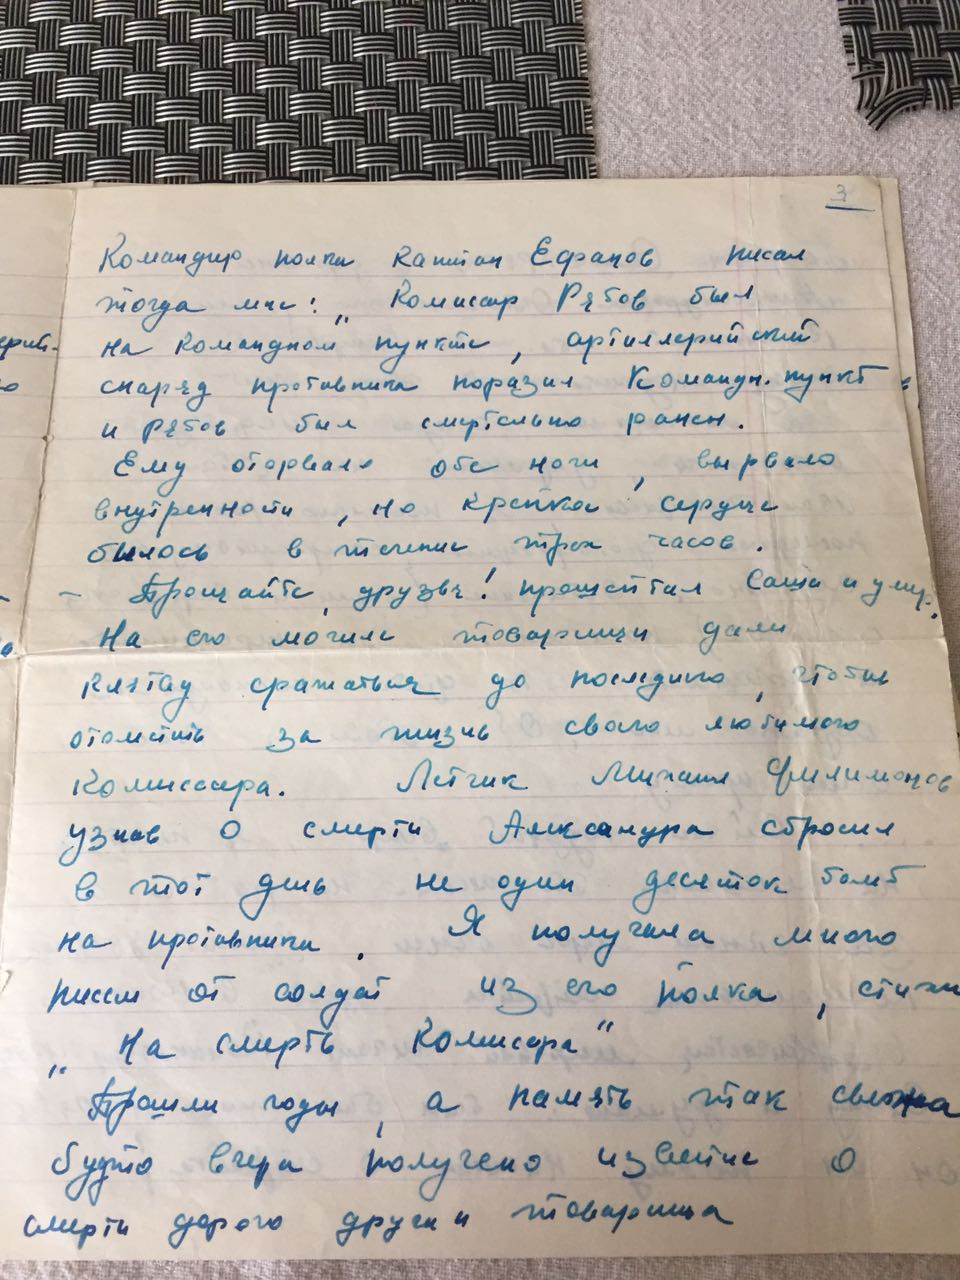 3
Командир полка капитан Ефанов писал
тогда мне: „ Комисар Рябов был
на командном пункте, артиллерийский
снаряд противника поразил команд. пункт
и Рябов был смертельно ранен.
Ему оторвало обе ноги, вырвало
внутренности, но крепкое сердце
былось в течение трех часов.
– Прощайте, друзья! прошептал Саша и умер.
На его могиле товарищи дали
клятву сражаться до последнего, чтобы
отомстить за жизнь своего любимого
комиссара. Летчик Михаил Филимонов
узнав о смерти Александра сбросил
в тот день не один десяток бомб
на противника. Я получила много
писем от солдат из его полка, стихи
„ На смерть Комиссара"
Прошли годы, а память так свежа
будто вчера получено известие о
смерти дорого друга и товарища